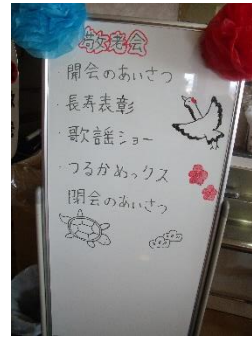 敬老会
・開会のあいさつ
・長寿表彰
・歌謡ショー
・つるかめっクス
閉会のあいさつ